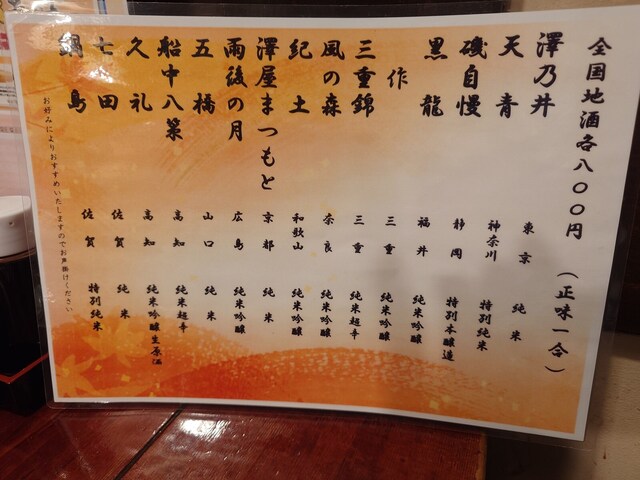 全国地酒各八〇〇円 (正味一合)
澤乃井 東京 純米
天青 神奈川 特別純米
磯自慢 静岡 特別本醸造
黒龍 福井 純米吟醸
作 三重 純米吟醸
三重錦 三重 純米超辛
風の森 奈良 純米吟醸
紀土 和歌山 純米吟醸
澤屋まつもと 京都 純米
雨後の月 広島 純米吟醸
五橋 山口 純米
船中八策 高知 純米超辛
久礼 高知 純米吟醸生原酒
七田 佐賀 純米
鍋島 佐賀 特別純米
お好みによりおすすめいたしますのでお声掛けください